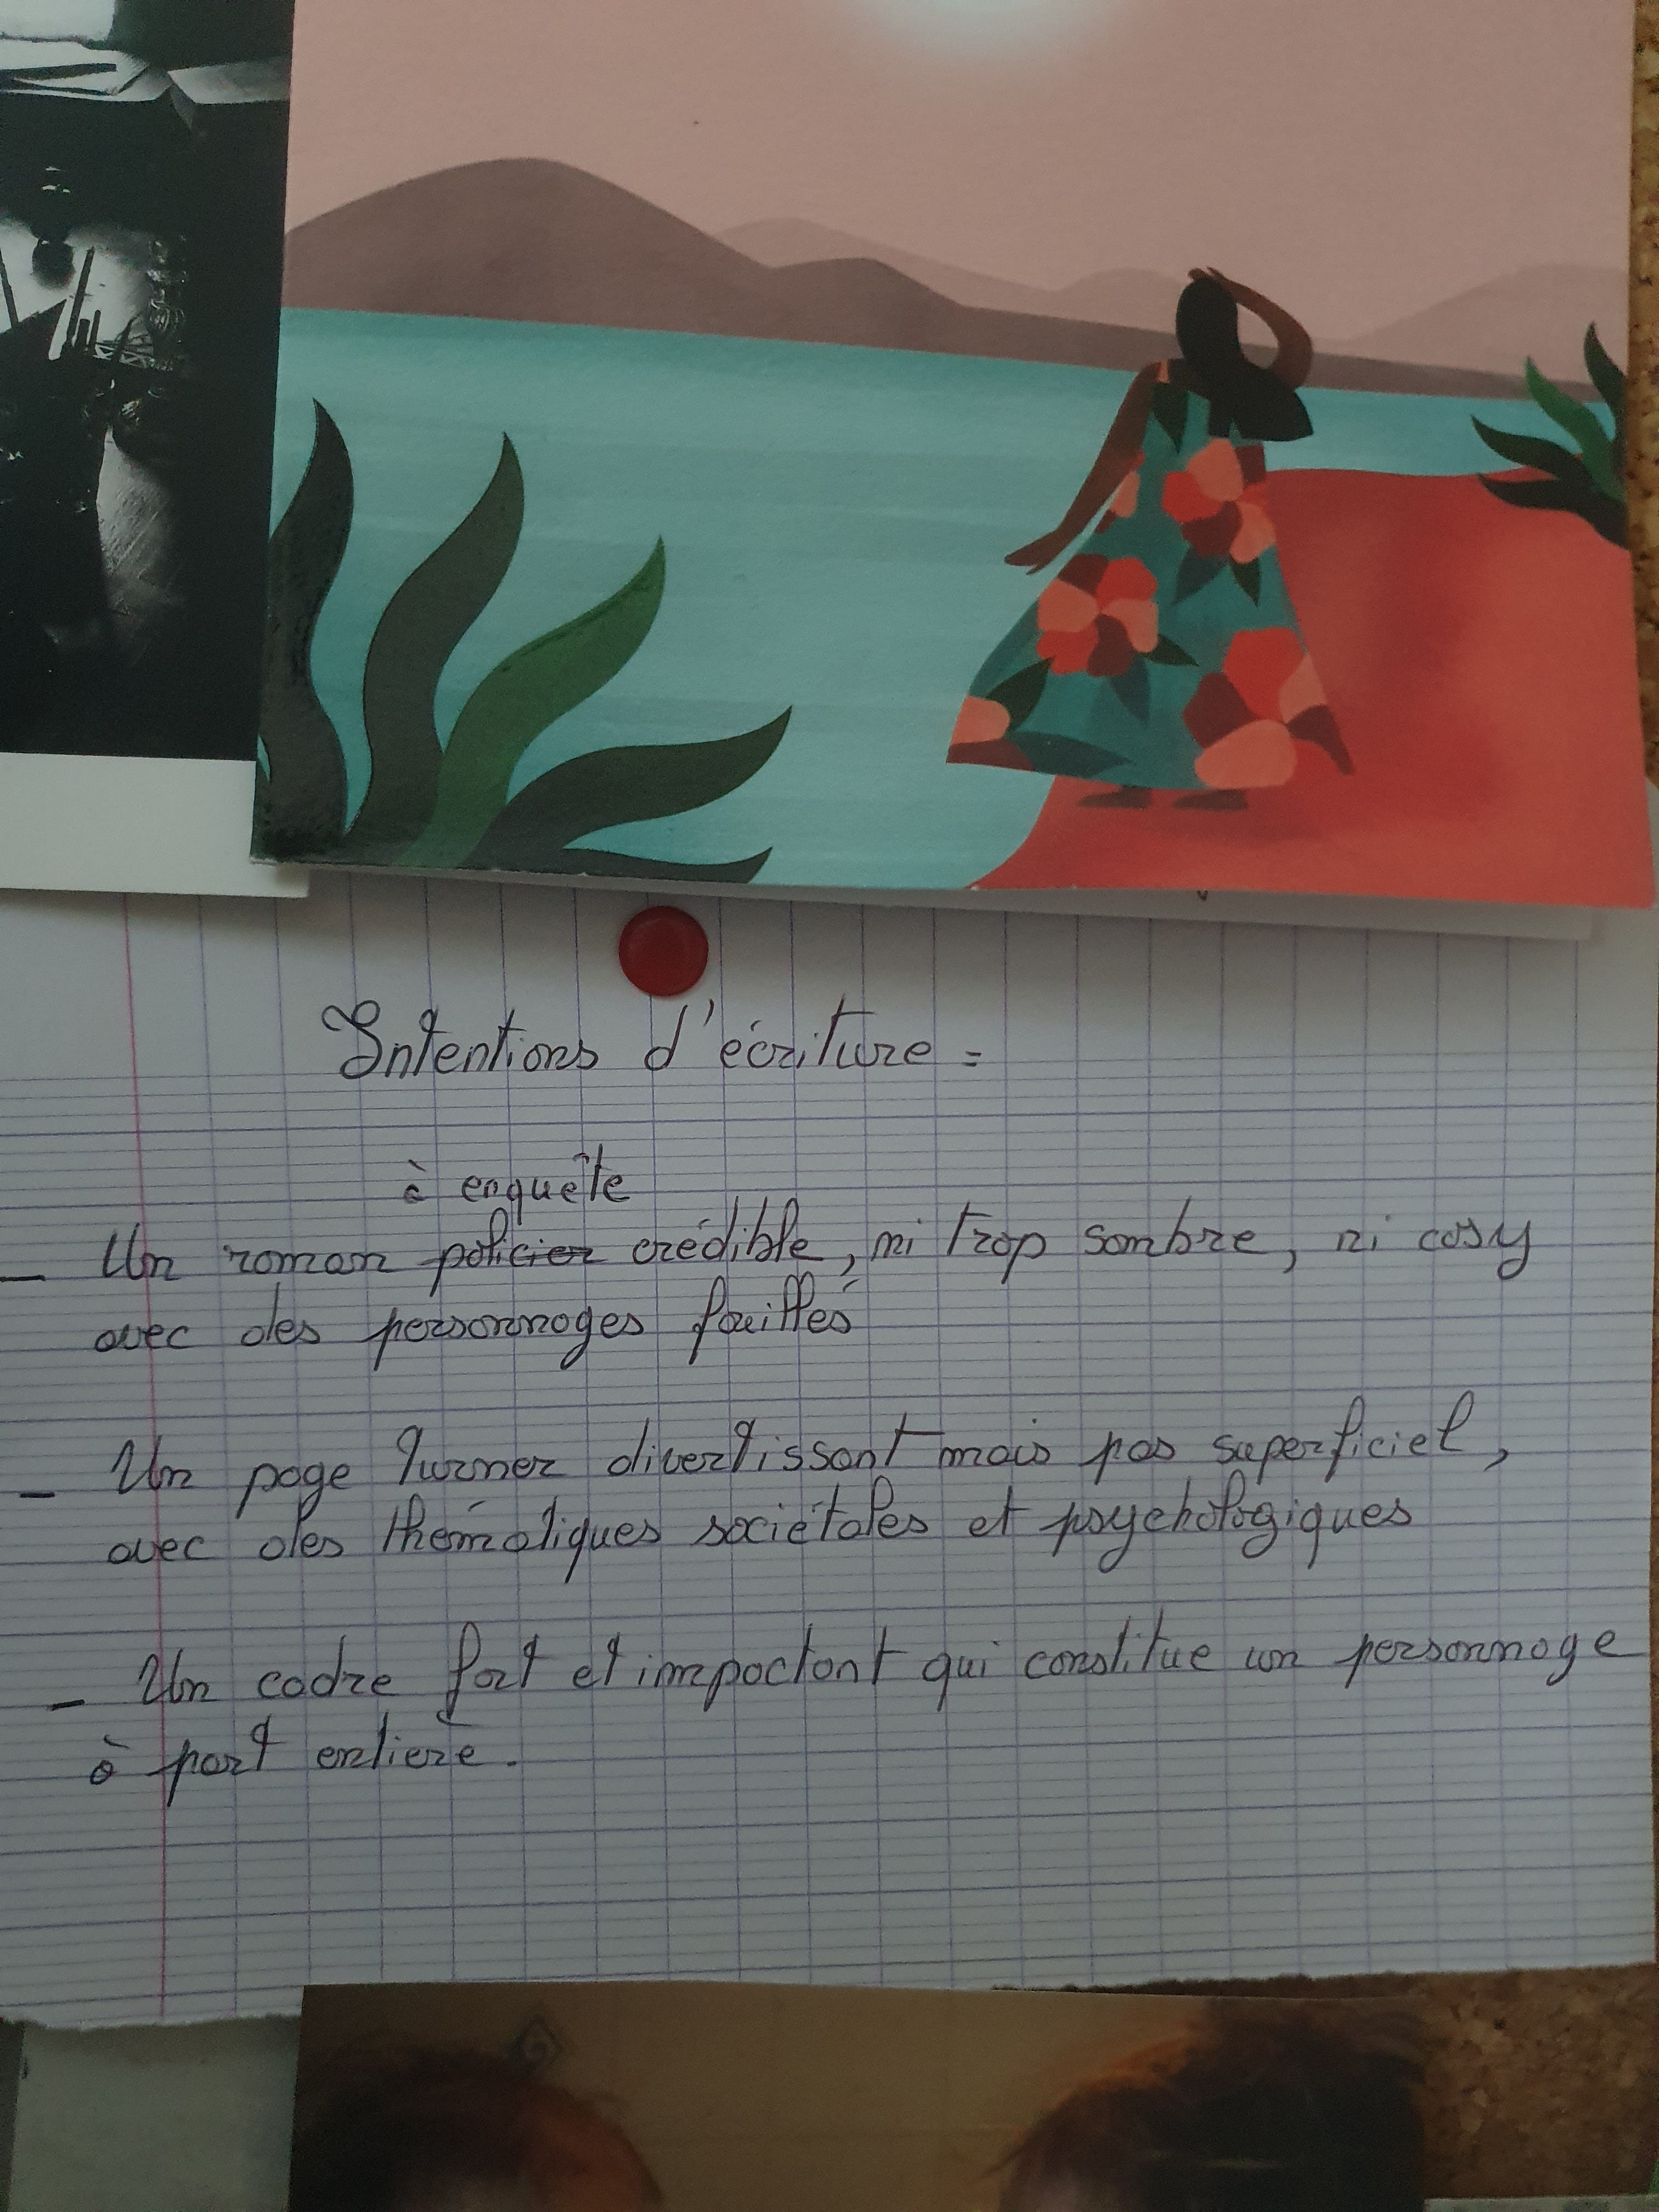 Intentions d'écriture =
à enquête
_ Un roman policier crédible, ni trop sombre, ni cosy
avec des personnages fouillés
_ Un page turner divertissant mais pas superficiel,
avec des thématiques sociétales et psychologiques
_ Un cadre fort et impactant qui constitue un personnage
à part entière.